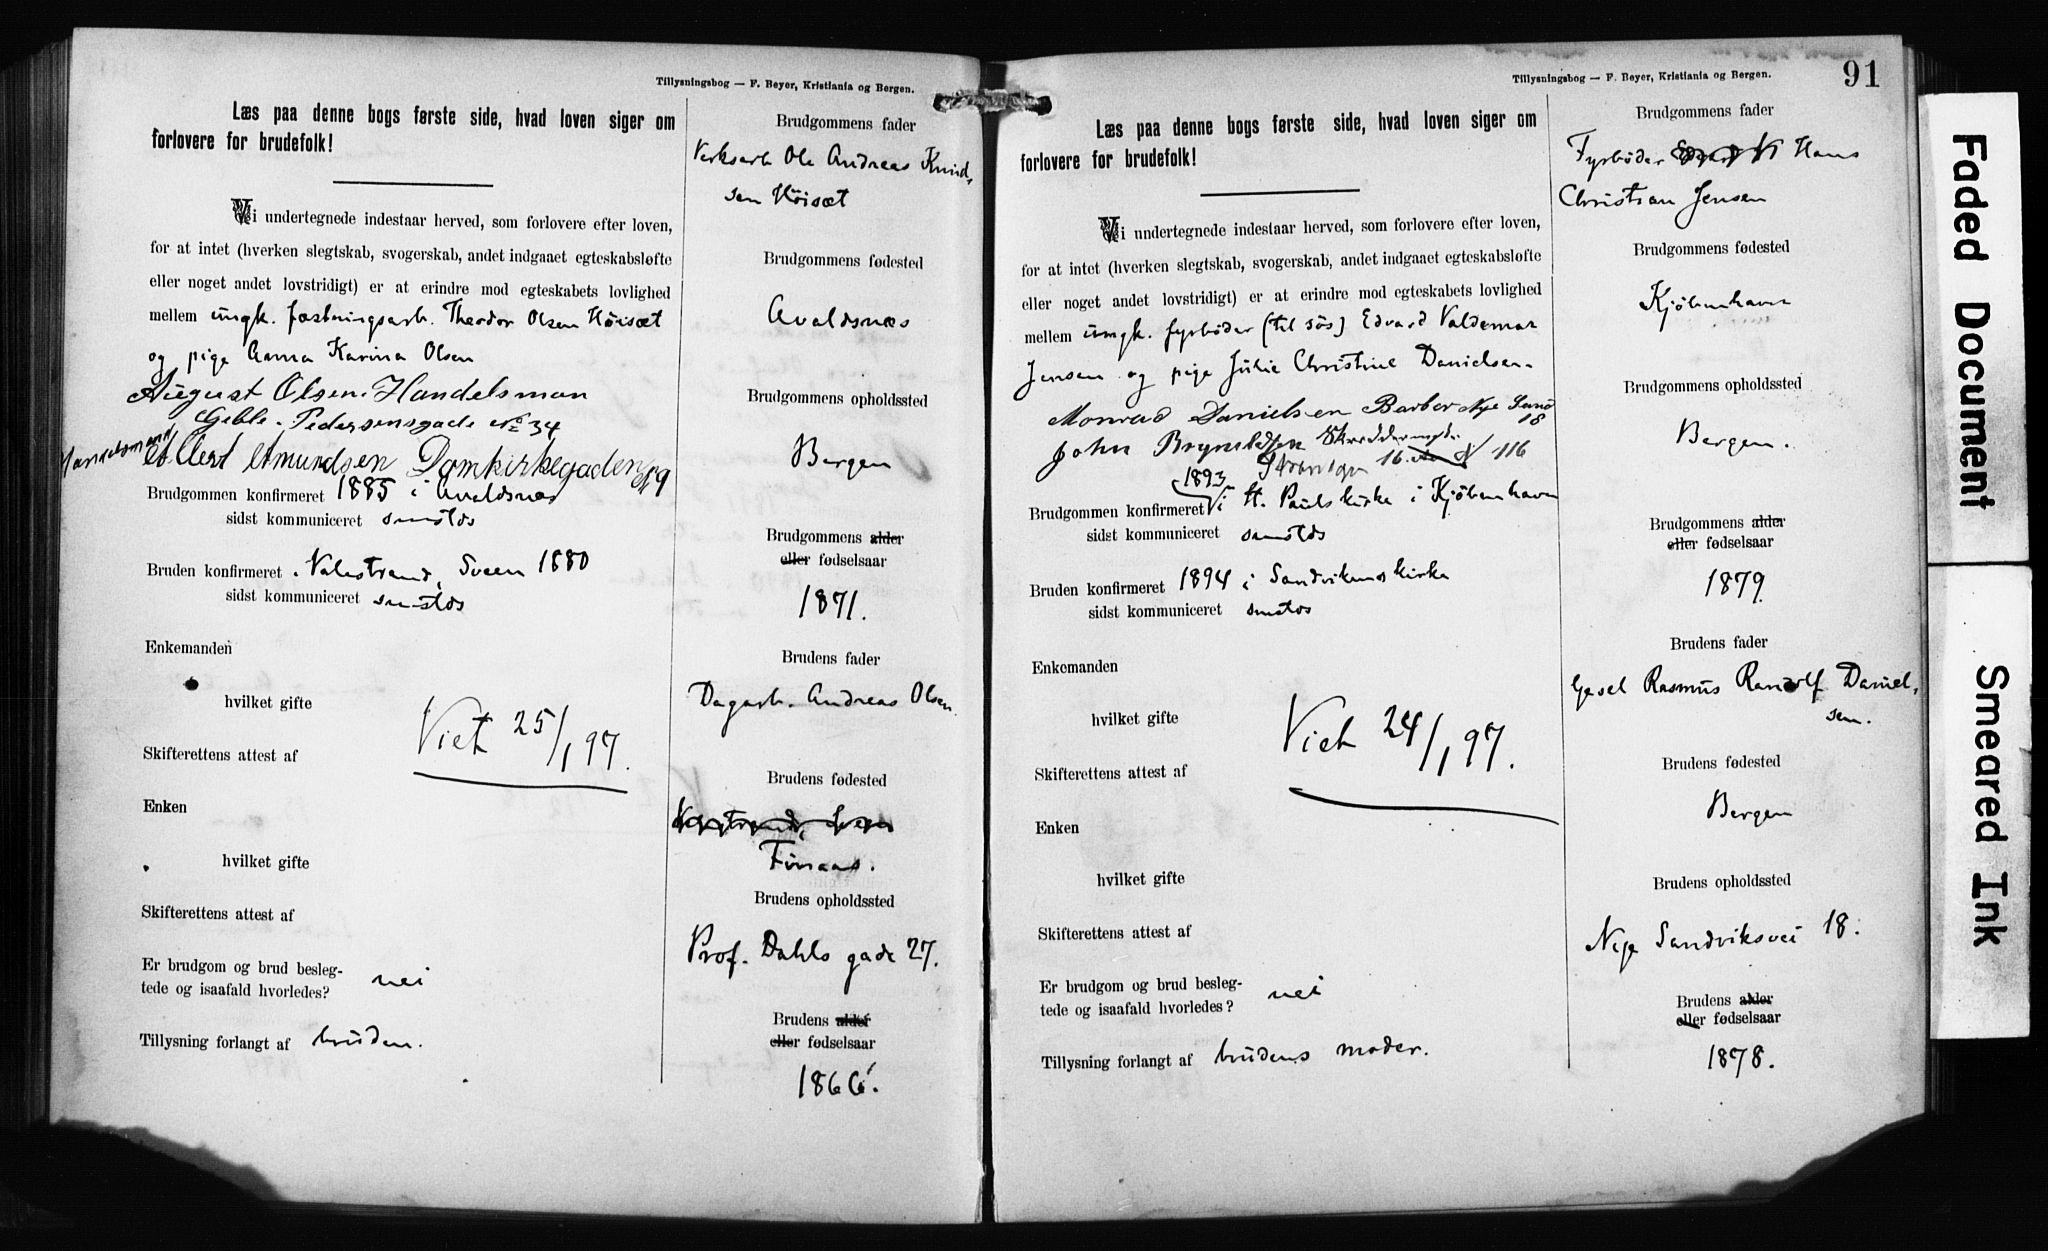 Tillysningsbog — F. Beyer, Kristiania og Bergen.
Læs paa denne bogs første side, hvad loven siger om
forlovere for brudefolk!
Vi undertegnede indestaar herved, som forlovere efter loven,
for at intet (hverken slegtskab, svogerskab, andet indgaaet egteskabsløfte
eller noget andet lovstridigt) er at erindre mod egteskabets lovlighed
mellem ungk. fæstningsarb. Theodor Olsen Höisæt
og pige Anna Karina Olsen
August Olsen. Handelsman
Geble-Pedersensgade No 34
Handelsmand
Amundsen Domkirkegaden 19
Brudgommen konfirmeret 1885 i Avaldsnæs
sidst kommuniceret smstds
Bruden konfirmeret Valestrand, Sveen 1880
sidst kommuniceret smstds
Enkemanden
hvilket gifte
Viet 25/1 97.
Skifterettens attest af
Enken
hvilket gifte
Skifterettens attest af
Er brudgom og brud besleg-
tede og isaafald hvorledes? nei
Tillysning forlangt af bruden.
Brudgommens fader
Verksarb Ole Andreas Knud-
sen Höisæt
Brudgommens fødested
Avaldsnæs
Brudgommens opholdssted
Bergen
Brudgommens alder
eller fødselsaar
1871.
Brudens fader
Dagarb. Andreas Olsen.
Brudens fødested
Finaas.
Brudens opholdssted
Prof. Dahls gade 27.
Brudens alder
eller fødselsaar
1866.
Tillysningsbog — F. Beyer, Kristiania og Bergen.
91
Læs paa denne bogs første side, hvad loven siger om
forlovere for brudefolk!
Vi undertegnede indestaar herved, som forlovere efter loven,
for at intet (hverken slegtskab, svogerskab, andet indgaaet egteskabsløfte
eller noget andet lovstridigt) er at erindre mod egteskabets lovlighed
mellem ungk. fyrböder (til sös) Edvard Valdemar
Jensen og pige Julie Christine Danielsen.
Monrad Danielsen Barber Nye Sand
18
John Brynildsen
116
1893
Brudgommen konfirmeret i St. Pauls kirke i Kjöbenhavn
sidst kommuniceret smstds
Bruden konfirmeret 1894 i Sandvikens kirke
sidst kommuniceret smstds
Enkemanden
hvilket gifte
Viet 24/1 97.
Skifterettens attest af
Enken
hvilket gifte
Skifterettens attest af
Er brudgom og brud besleg-
tede og isaafald hvorledes? nei
Tillysning forlangt af brudens moder.
Brudgommens fader
Fyrböder Hans
Christian Jensen
Brudgommens fødested
Kjöbenhavn
Brudgommens opholdssted
Bergen.
Brudgommens alder
eller fødselsaar
1879.
Brudens fader
Rasmus Randolf Daniel-
sen.
Brudens fødested
Bergen
Brudens opholdssted
Nye Sandviksvei 18.
Brudens alder
eller fødselsaar
1878.
Faded Document
Smeared Ink